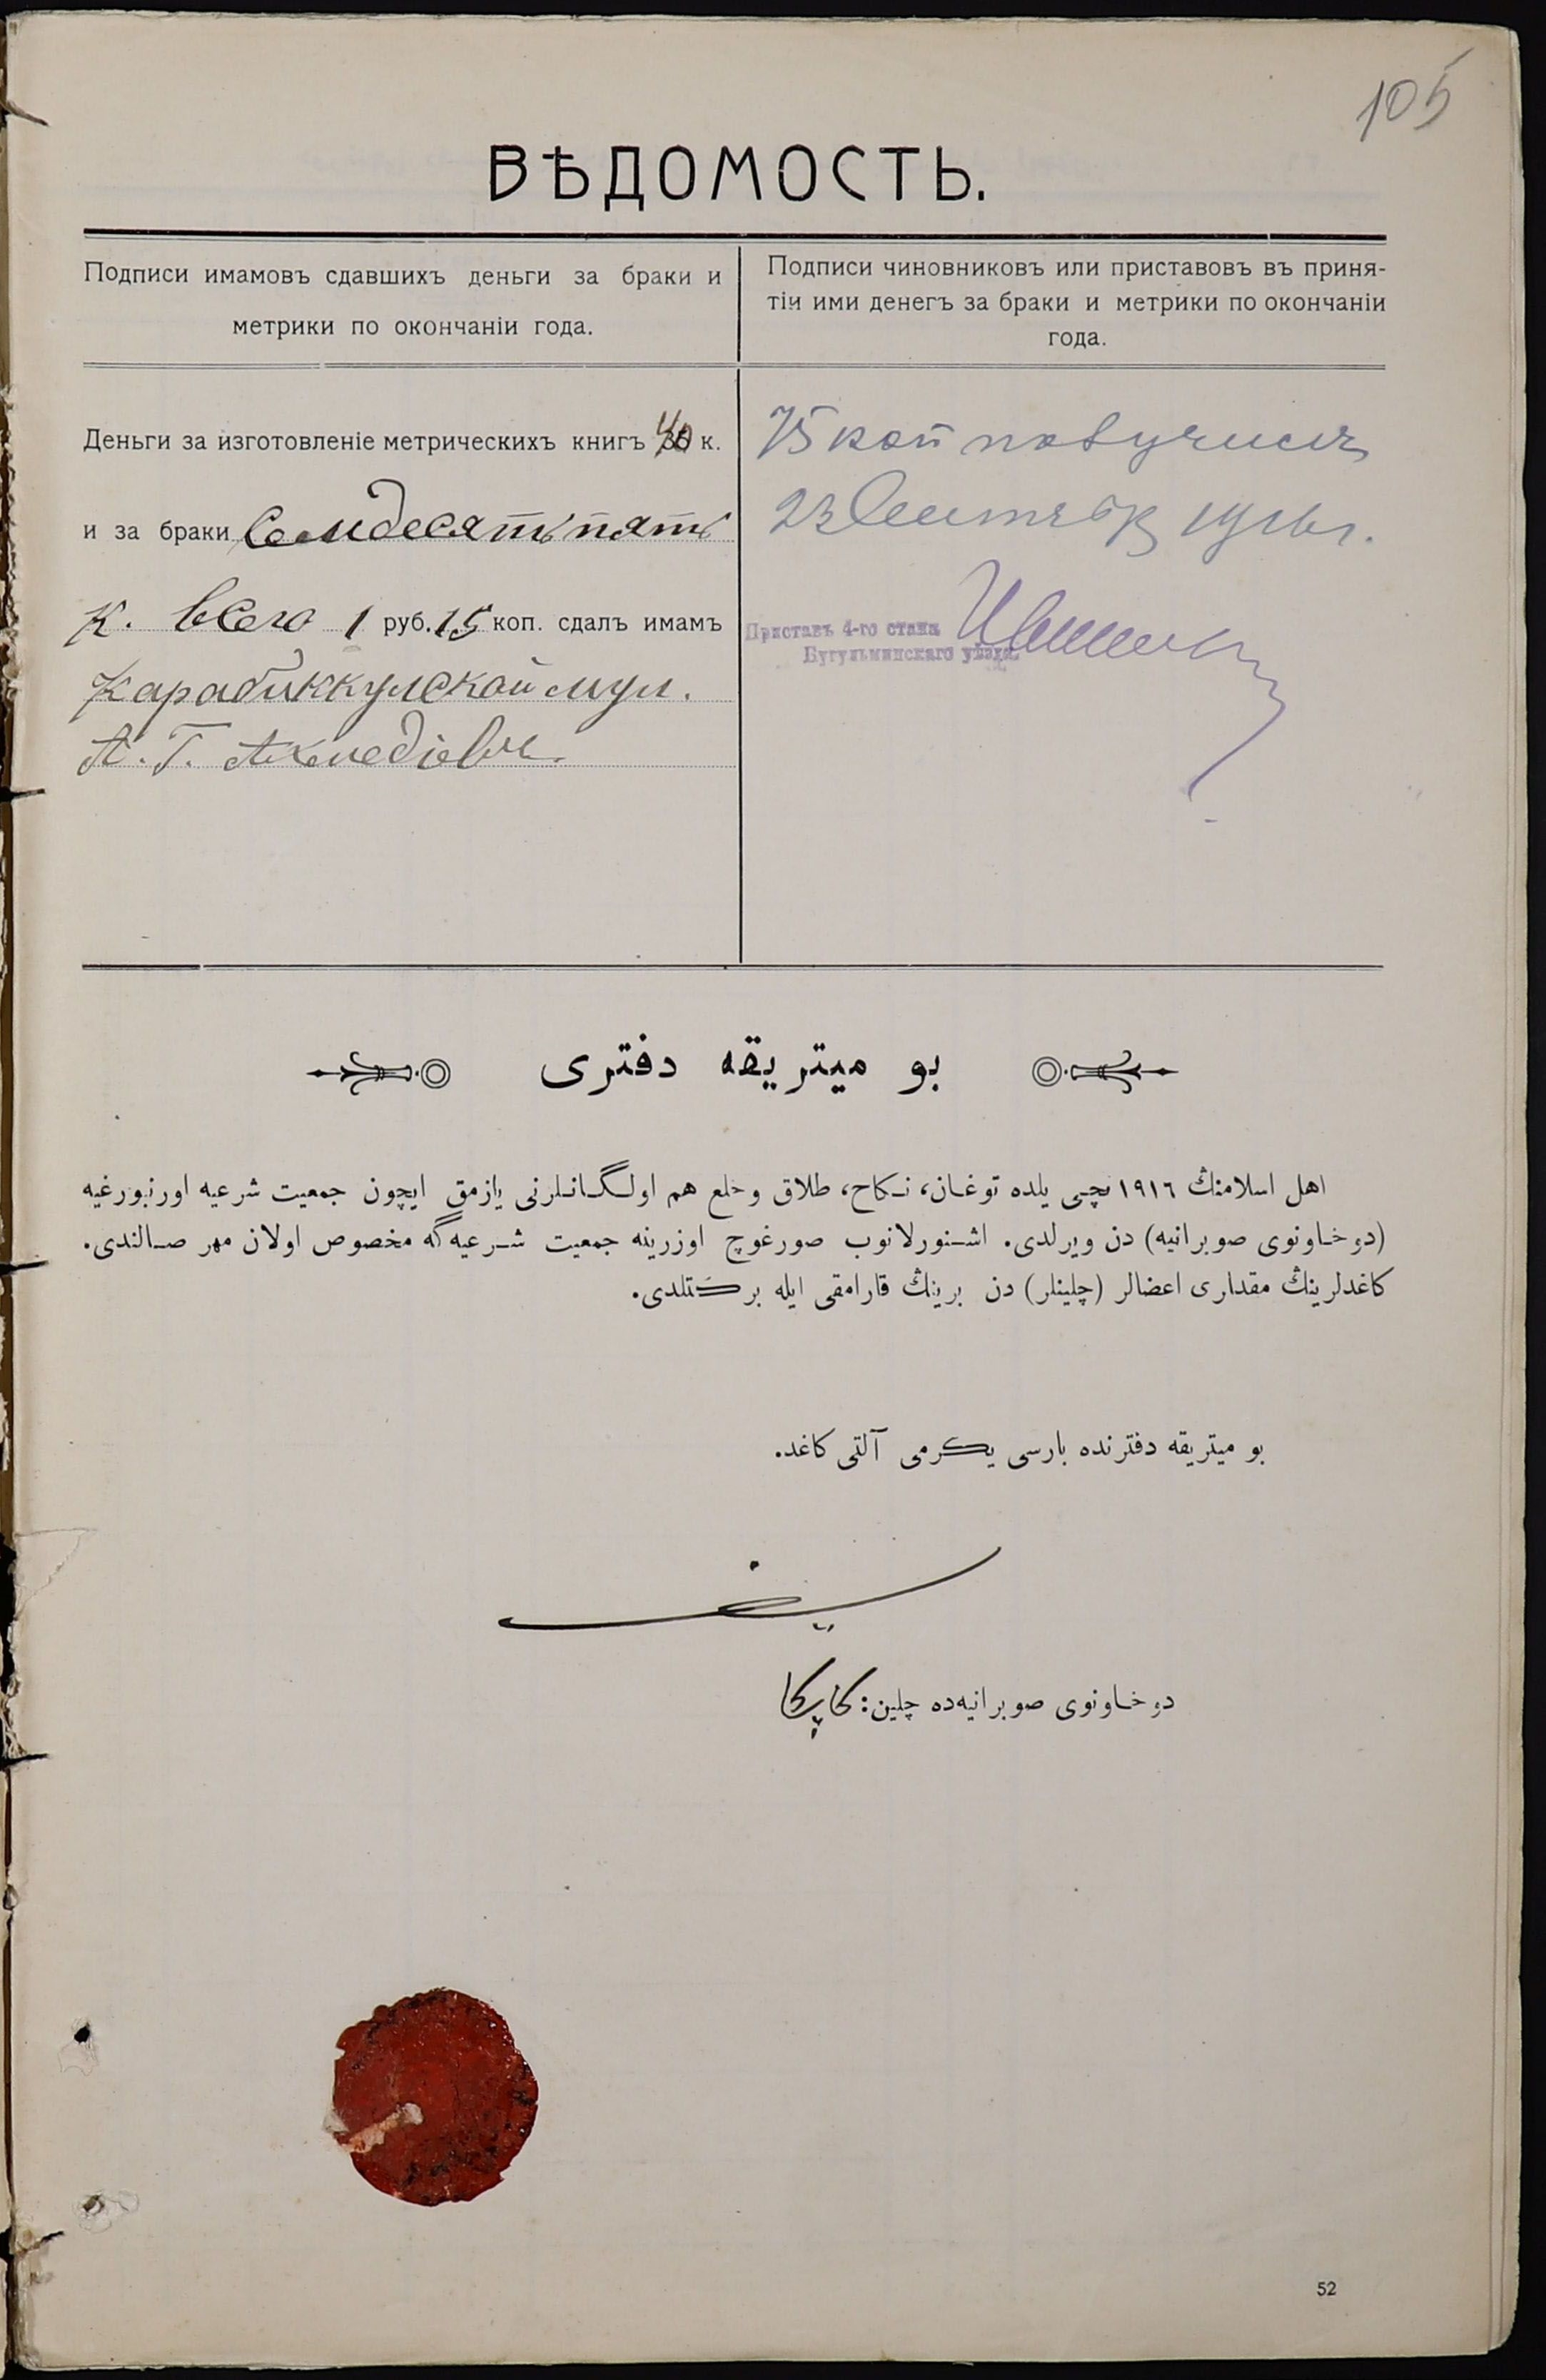 105
ВѢДОМОСТЬ.
Подписи имамовъ сдавшихъ деньги за браки и
метрики по окончаніи года.
Подписи чиновниковъ или приставовъ въ приня-
тіи ими денегъ за браки и метрики по окончаніи
года.
Деньги за изготовленіе метрическихъ книгъ 40 к.
и за браки Семдесять пять
к. всего 1 руб. 15 коп. сдалъ имамъ
Карабиккулской мул.
А. Г. Ахмедіевъ.
75 коп получилъ
23 Сентября 1916 г.
Приставъ 4-го стана
Бугульминскаго уѣзда
بو ميتريقه دفترى
اهل اسلامنڭ ١٩١٦ نچى يلده توغان، نكاح، طلاق وخلع هم اولگانلرنى يازمق ايچون جمعيت شرعيه اورنبورغيه
(دوخاونوى صوبرانيه) دن ويرلدى. اشنورلانوب صورغوچ اوزرينه جمعيت شرعيه گه مخصوص اولان مهر صالندى.
كاغدلرينڭ مقدارى اعضالر (چلينلر) دن برينڭ قارامقى ايله بركتلدى.
بو ميتريقه دفترنده بارسى يكرمى آلتى كاغد.
دوخاونوى صوبرانيه‌ده چلين:
52